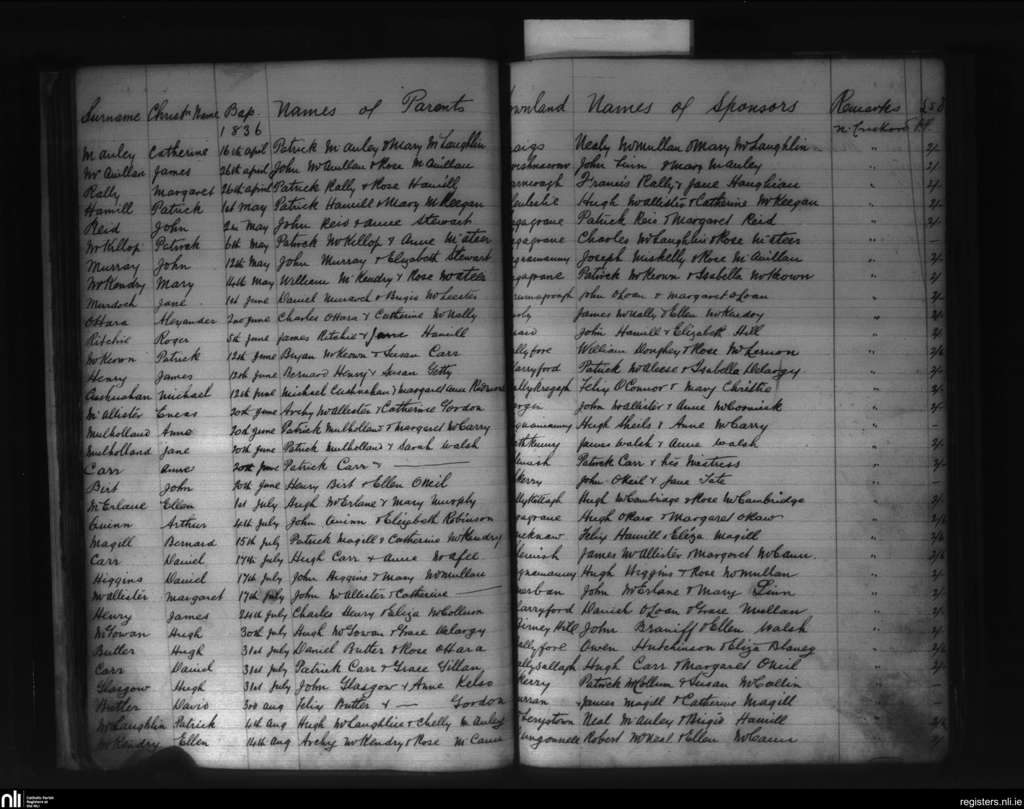 Surname Christn Name Bap. Names of Parents ownland Names of Sponsors Remarks £ s d
1836 N. Crickard PP.
McAuley Catherine 16th April Patrick McAuley & Mary McLaughlin aigs Nealy McMullan & Mary McLaughlin " 2/-
McQuillan James 26th April John McQuillan & Rose McQuillan John Linn & Mary McAuley " 2/-
Rally Margaret 26th April Patrick Rally & Rose Hamill Francis Rally & Jane Haughian " 2/-
Hamill Patrick 1st May Patrick Hamill & Mary McKeegan Hugh McAllister & Catherine McKeegan " 2/-
Reid John 2nd May John Reid & Anne Stewart gagrane Patrick Reid & Margaret Reid " 2/-
McKillop Patrick 6th May Patrick McKillop & Anne McAteer gagrane Charles McLaughlin & Rose McAteer " -
Murray John 12th May John Murray & Elizabeth Stewart gnamanny Joseph Miskelly & Rose McQuillan " 2/-
McKendry Mary 14th May William McKendry & Rose McAteer gagrane Patrick McKeown & Isabella McKeown " 2/-
Murdoch Jane 1st June Daniel Murdoch & Brigid McLeester John OLoan & Margaret OLoan " 2/-
OHara Alexander 2nd June Charles OHara & Catherine McNally James McNally & Ellen McKendry " 2/-
Ritchie Roger 5th June James Ritchie & Jane Hamill John Hamill & Elizabeth Hill " 2/-
McKeown Patrick 12th June Bryan McKeown & Susan Carr llyfore William Donghey & Rose McLernon " 2/6
Henry James 12th June Bernard Henry & Susan Getty arryford Patrick McAleese & Isabella Delargy " 2/-
Cushnahan Michael 12th Michael Cushnahan & Margaret Anne Felix OConnor & Mary Christie " 2/-
McAllister Eneas 20th June Archy McAllister & Catherine Gordon John McAllister & Anne McCormick " 2/-
Mulholland Anne 20th June Patrick Mulholland & Margaret McCarry gnamanny Hugh Sheils & Anne McCarry " -
Mulholland Jane 20th June Patrick Mulholland & Sarah Walsh James Walsh & Anne Walsh " 2/-
Carr Anne 20th June Patrick Carr & — Patrick Carr & his Mistress " 2/-
Birt John 20th June Henry Birt & Ellen ONeil kerry John ONeil & Jane Tate " -
McErlane Ellen 1st July Hugh McErlane & Mary Murphy Hugh McCambridge & Rose McCambridge " 2/-
Quinn Arthur 4th July John Quinn & Elizabeth Robinson gagrane Hugh OKaw & Margaret OKaw " 2/6
Magill Bernard 15th July Patrick Magill & Catherine McKendry Felix Hamill & Eliza Magill " 2/6
Carr Daniel 17th July Hugh Carr & Anne McAfee James McAllister & Margaret McCann. " 2/6
Higgins Daniel 17th July John Higgins & Mary McMullan gnamanny Hugh Higgins & Rose McMullan " 2/-
McAllister Margaret 17th July John McAllister & Catherine — John McErlane & Mary Linn " 2/-
Henry James 24th July Charles Henry & Eliza McCollum arryford Daniel OLoan & Grace Mullan " 2/-
McGowan Hugh 30th July Hugh McGowan & Grace Delargy Hill John Braniff & Ellen Walsh " 2/-
Butler Hugh 31st July Daniel Butler & Rose OHara allyfore Owen Hutchinson & Eliza Blaney " 2/6
Carr Daniel 31st July Patrick Carr & Grace Gillan Hugh Carr & Margaret ONeil "
Glasgow Hugh 31st July John Glasgow & Anne Kelso kerry Patrick McCollum & Susan McCollin "
Butler David 3rd Aug Felix Butler & — Gordon urran James Magill & Catherine Magill "
McLaughlin Patrick 4th Aug Hugh McLaughlin & Chelly McAuley Neal McAuley & Brigid Hamill " 2/6
McKendry Ellen 14th Aug Archy McKendry & Rose McCann Robert McNeal & Ellen McCann " 2/
nli Catholic Parish Registers at the NLI
registers.nli.ie